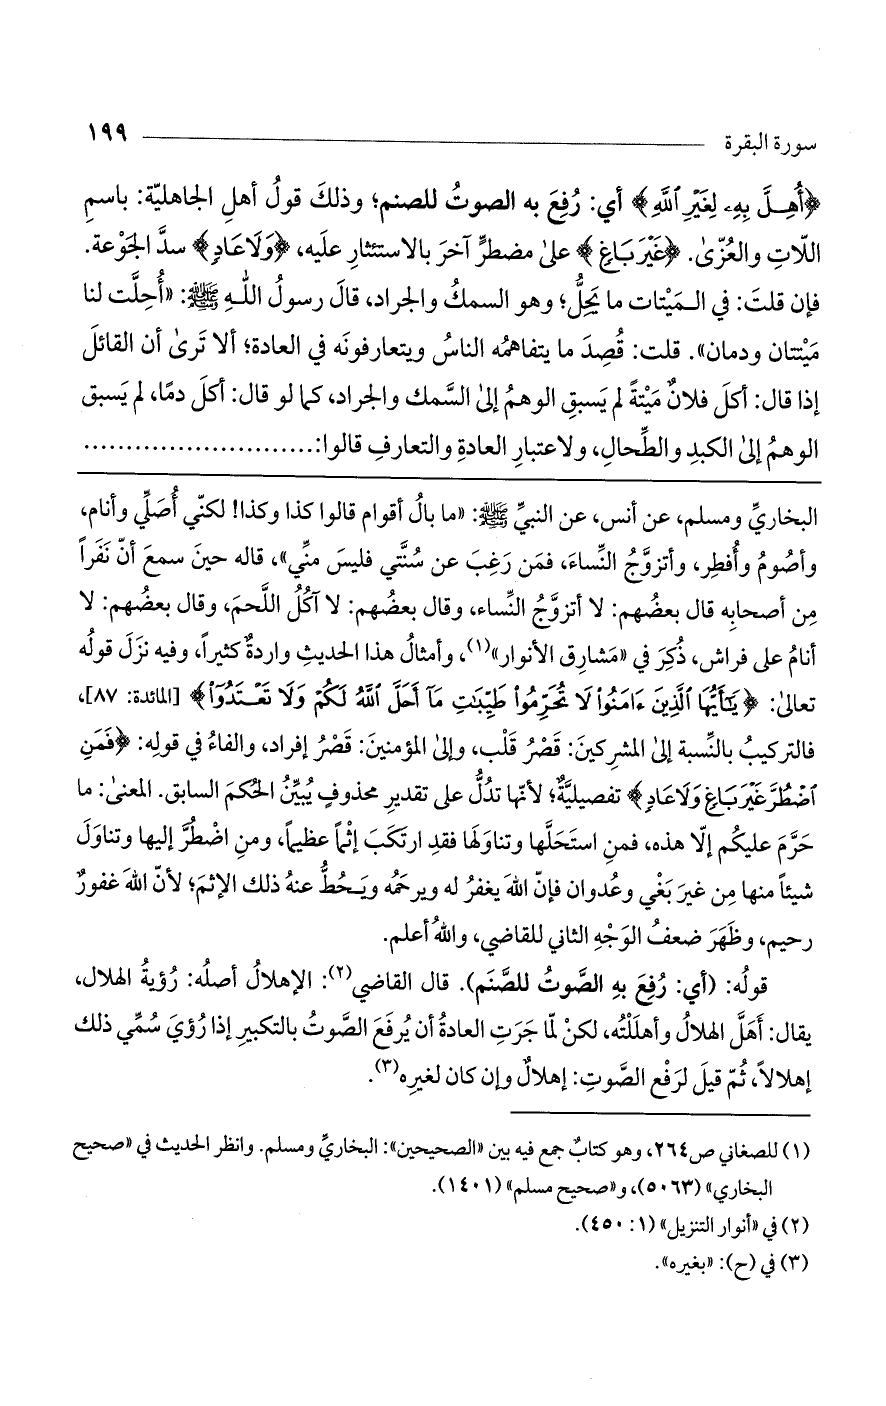 سورة البقرة ١٩٩
﴿أُهِلَّ بِهِۦ لِغَيْرِ ٱللَّهِ﴾ أي: رُفِعَ به الصوتُ للصنم؛ وذلكَ قولُ أهلِ الجاهليّة: باسمِ
اللّاتِ والعُزّىٰ. ﴿غَيْرَ بَاغٍ﴾ علىٰ مضطرٍّ آخرَ بالاستئثارِ علَيه، ﴿وَلَا عَادٍ﴾ سدَّ الجَوْعة.
فإن قلتَ: في الـمَيْتات ما يَحِلُّ؛ وهو السمكُ والجراد، قالَ رسولُ اللـهِ ﷺ: «أُحِلَّت لنا
مَيْتتان ودمان». قلت: قُصِدَ ما يتفاهمُه الناسُ ويتعارفونَه في العادة؛ ألا تَرىٰ أن القائلَ
إذا قال: أكلَ فلانٌ مَيْتةً لم يَسبقِ الوهمُ إلىٰ السَّمك والجراد، كما لو قال: أكلَ دمًا، لم يَسبق
الوهمُ إلىٰ الكبدِ والطِّحال، ولاعتبارِ العادةِ والتعارفِ قالوا:...........................
البخاريِّ ومسلم، عن أنس، عن النبيِّ ﷺ: «ما بالُ أقوام قالوا كذا وكذا! لكنّي أُصَلِّي وأنام،
وأصُومُ وأُفطِر، وأتزوَّجُ النِّساءَ، فمَن رَغِبَ عن سُنَّتي فليسَ منِّي»، قاله حينَ سمعَ أنّ نَفَراً
مِن أصحابِه قال بعضُهم: لا أتزوَّجُ النِّساء، وقال بعضُهم: لا آكُلُ اللَّحمَ، وقال بعضُهم: لا
أنامُ على فراش، ذُكِرَ في «مَشارِق الأنوار»(١)، وأمثالُ هذا الحديثِ واردةٌ كثيراً، وفيه نزَلَ قولُه
تعالىٰ: ﴿يَٰٓأَيُّهَا ٱلَّذِينَ ءَامَنُوا۟ لَا تُحَرِّمُوا۟ طَيِّبَٰتِ مَآ أَحَلَّ ٱللَّهُ لَكُمْ وَلَا تَعْتَدُوٓا۟﴾ [المائدة: ٨٧]،
فالتركيبُ بالنِّسبة إلىٰ المشرِكينَ: قَصْرُ قَلْب، وإلىٰ المؤمنينَ: قَصْرُ إفراد، والفاءُ في قولِه: ﴿فَمَنِ
ٱضْطُرَّ غَيْرَ بَاغٍ وَلَا عَادٍ﴾ تفصيليَّةٌ؛ لأنّها تدُلُّ على تقديرِ محذوفٍ يُبيِّنُ الحُكمَ السابق. المعنىٰ: ما
حَرَّمَ عليكُم إلّا هذه، فمنِ استَحَلَّها وتناوَلَها فقدِ ارتَكَبَ إثماً عظيماً، ومنِ اضْطُرَّ إليها وتناوَلَ
شيئاً منها مِن غيرَ بَغْي وعُدوان فإنّ اللهَ يغفرُ له ويرحَمُه ويَـحُطُّ عنهُ ذلك الإثمَ؛ لأنّ اللهَ غفورٌ
رحيم، وظَهَرَ ضعفُ الوَجْهِ الثاني للقاضي، واللهُ أعلم.
قولُه: (أي: رُفِعَ بهِ الصَّوتُ للصَّنَم). قال القاضي(٢): الإهلالُ أصلُه: رُؤيةُ الهلال،
يقال: أَهَلَّ الهلالُ وأهلَلْتُه، لكنْ لمّا جَرَتِ العادةُ أن يُرفَعَ الصَّوتُ بالتكبيرِ إذا رُؤيَ سُمِّي ذلك
إهلالاً، ثُمّ قيلَ لرَفْع الصَّوتِ: إهلالٌ وإن كان لغيرِه(٣).
(١) للصغاني ص٢٦٤، وهو كتابٌ جمع فيه بين «الصحيحين»: البخاريِّ ومسلم. وانظر الحديث في «صحيح
البخاري» (٥٠٦٣)، و«صحيح مسلم» (١٤٠١).
(٢) في «أنوار التنزيل» (١: ٤٥٠).
(٣) في (ح): «بغيره».